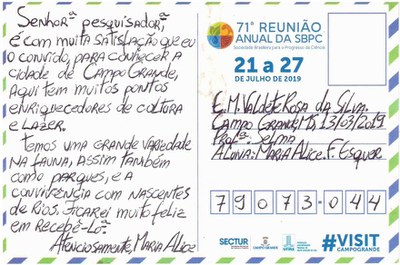 Senhorª pesquisadorª
É com muita satisfação que eu
o convido, para conhecer a
cidade de Campo Grande,
Aqui tem muitos pontos
enriquecedores de cultura
e lazer.
Temos uma grande variedade
na fauna, assim também
como parques, e a
convivência com nascentes
de rios. Ficarei muito feliz
em recebê-lo.
Atenciosamente, Maria Alice
71ª REUNIÃO
ANUAL DA SBPC
Sociedade Brasileira para o Progresso da Ciência
21 a 27
DE JULHO DE 2019
E.M. Valdete Rosa da Silva.
Campo Grande MS, 13/03/2019
Profª. Selma
Aluna: Maria Alice. F. Esquer
79073-044
SECTUR
CAMPO GRANDE
UFMS
#VISIT
CAMPOGRANDE